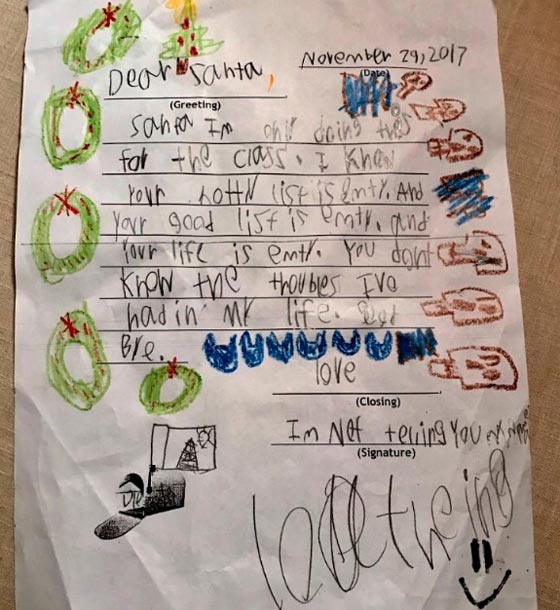 Dear Santa,
November 29, 2017
(Date)
(Greeting)
Santa Im onlr doing this
for the class. I know
Your notty list is emty. And
Your good list is emty. and
Your life is emty. You dont
know the troubles Ive
had in my life. Good
Bye.
love
(Closing)
Im Not telling you my name
(Signature)